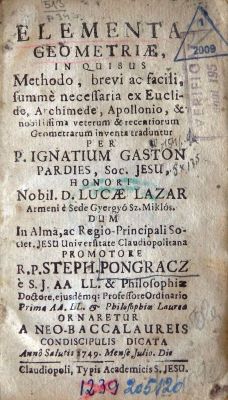 ELEMENTA
GEOMETRIÆ,
IN QUIBUS
Methodo, brevi ac facili,
summè necessaria ex Eucli-
de, Archimede, Apollonio, &
nobilissima veterum & recentiorum
Geometrarum inventa traduntur
PER
P. IGNATIUM GASTON
PARDIES, Soc. JESU,
HONORI
Nobil. D. LUCÆ LAZAR
Armeni è Sede Gyergyó Sz. Miklós.
DUM
In Alma, ac Regio-Principali So-
ciet. JESU Universitate Claudiopolitana
PROMOTORE
R.P. STEPH. PONGRACZ
è S. J. AA LL. & Philosophiæ
Doctore, ejusdémq; Professore Ordinario
Primâ AA. LL. & Philosophiæ Laureâ
ORNARETUR
A NEO-BACCALAUREIS
CONDISCIPULIS DICATA
Annô Salutis 1749. Mense Julio. Die
Claudiopoli, Typis Academicis S. JESU.
1239 205120
1
2009
VERIFICAT